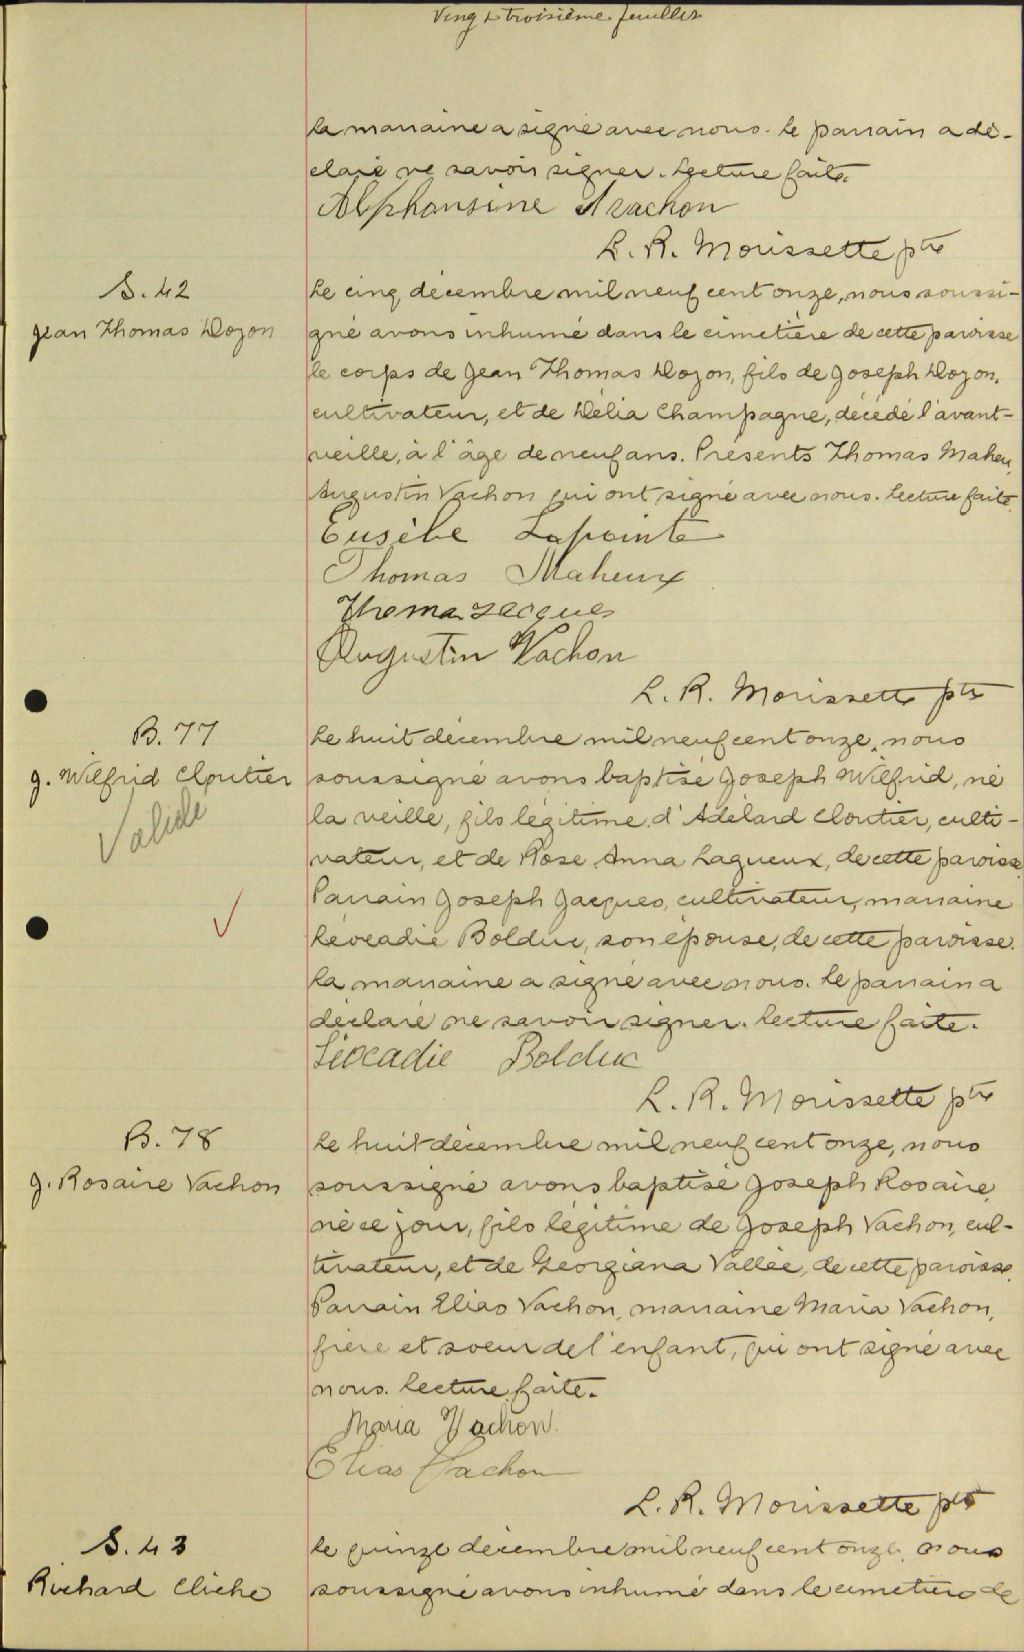 Vingt troisième feuillet
la marraine a signé avec nous. Le parrain a dé-
claré ne savoir signer. Lecture faite.
Alphonsine Vachon
L. R. Morissette ptre
S. 42
Jean Thomas Doyon
Le cinq décembre mil neuf cent onze, nous soussi-
gné avons inhumé dans le cimetière de cette paroisse
le corps de Jean Thomas Doyon, fils de Joseph Doyon,
cultivateur, et de Délia Champagne, décédé l'avant-
veille, à l'âge de neuf ans. Présents Thomas Maheu,
Augustin Vachon qui ont signé avec nous. Lecture faite.
Eusèbe Lapointe
Thomas Maheux
Thomas Jacques
Augustin Vachon
L. R. Morissette ptre
B. 77
J. Wilfrid Cloutier
Valide
Le huit décembre mil neuf cent onze, nous
soussigné avons baptisé Joseph Wilfrid, né
la veille, fils légitime d'Adélard Cloutier, culti-
vateur, et de Rose Anna Lagueux, de cette paroisse.
Parrain Joseph Jacques, cultivateur, marraine
Léocadie Bolduc, son épouse, de cette paroisse.
La marraine a signé avec nous. Le parrain a
déclaré ne savoir signer. Lecture faite.
Léocadie Bolduc
L. R. Morissette ptre
B. 78
J. Rosaire Vachon
Le huit décembre mil neuf cent onze, nous
soussigné avons baptisé Joseph Rosaire,
né ce jour, fils légitime de Joseph Vachon, cul-
tivateur, et de Georgiana Vallée, de cette paroisse.
Parrain Elias Vachon, marraine Maria Vachon,
frère et soeur de l'enfant, qui ont signé avec
nous. Lecture faite.
Maria Vachon
Elias Vachon
L. R. Morissette ptre
S. 43
Richard Cliche
Le quinze décembre mil neuf cent onze, nous
soussigné avons inhumé dans le cimetière de